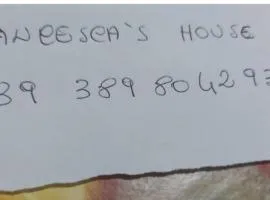 ANCESCA'S HOUSE
39 389 804293